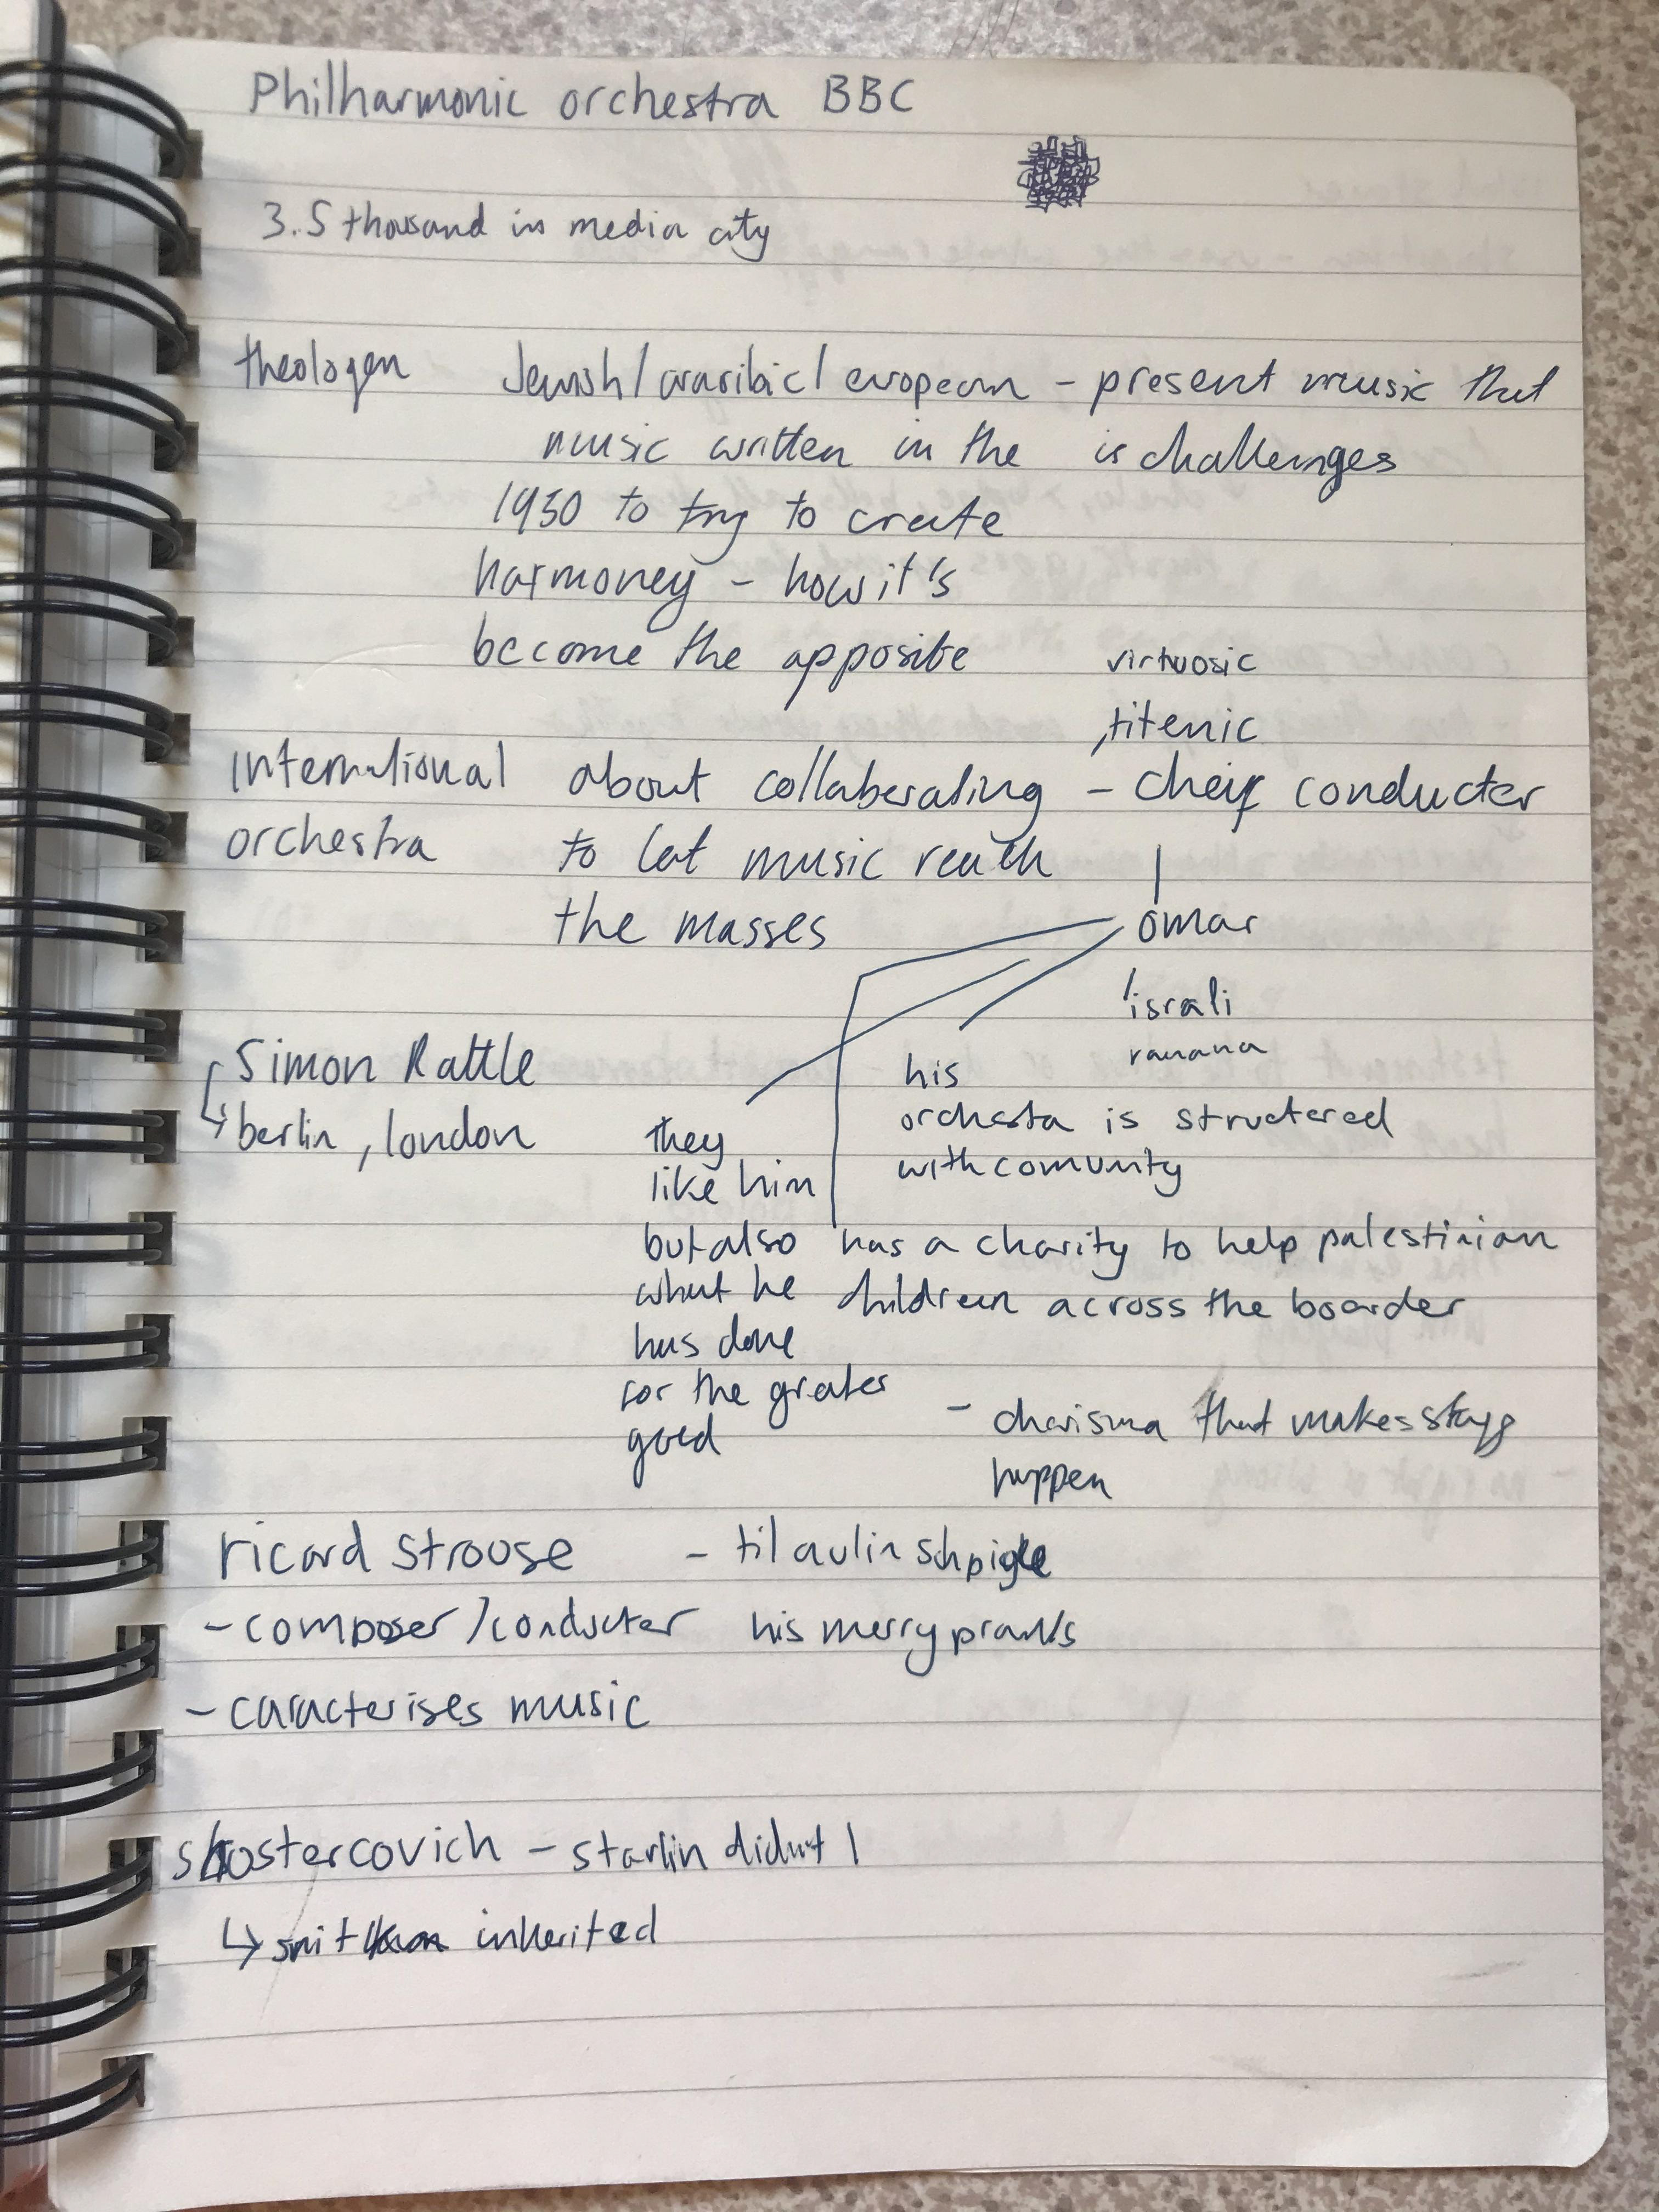 Philharmonic orchestra BBC
3.5 thousand in media city
theologen Jewish/araribic/european - present music that
music written in the is challenges
1930 to try to create
harmoney - how it's
become the apposite
virtuosic
titenic
International about collaberating - cheif conducter
orchestra to let music reach
the masses
omar
israli
ranana
Simon Rattle
berlin, london
his
orchesta is structered
with comunity
they
like him
but also
what he
has done
for the greater
good
has a charity to help palestinian
children across the boarder
- charisma that makes stuff
happen
ricard strouse - til aulin schpigle
- composer/conducter his merry pranks
- caracterises music
shostercovich - starlin didnt l
↳ inherited